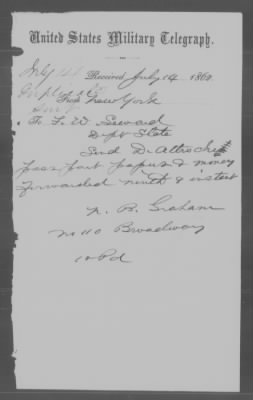 United States Military Telegraph.
July 14
Received July 14 186
From New York
To F. W. Seward
Dept State
Send D.
pass port papers & money
forwarded ninth & instant
N. B. Graham
No 110 Broadway
10 Pd